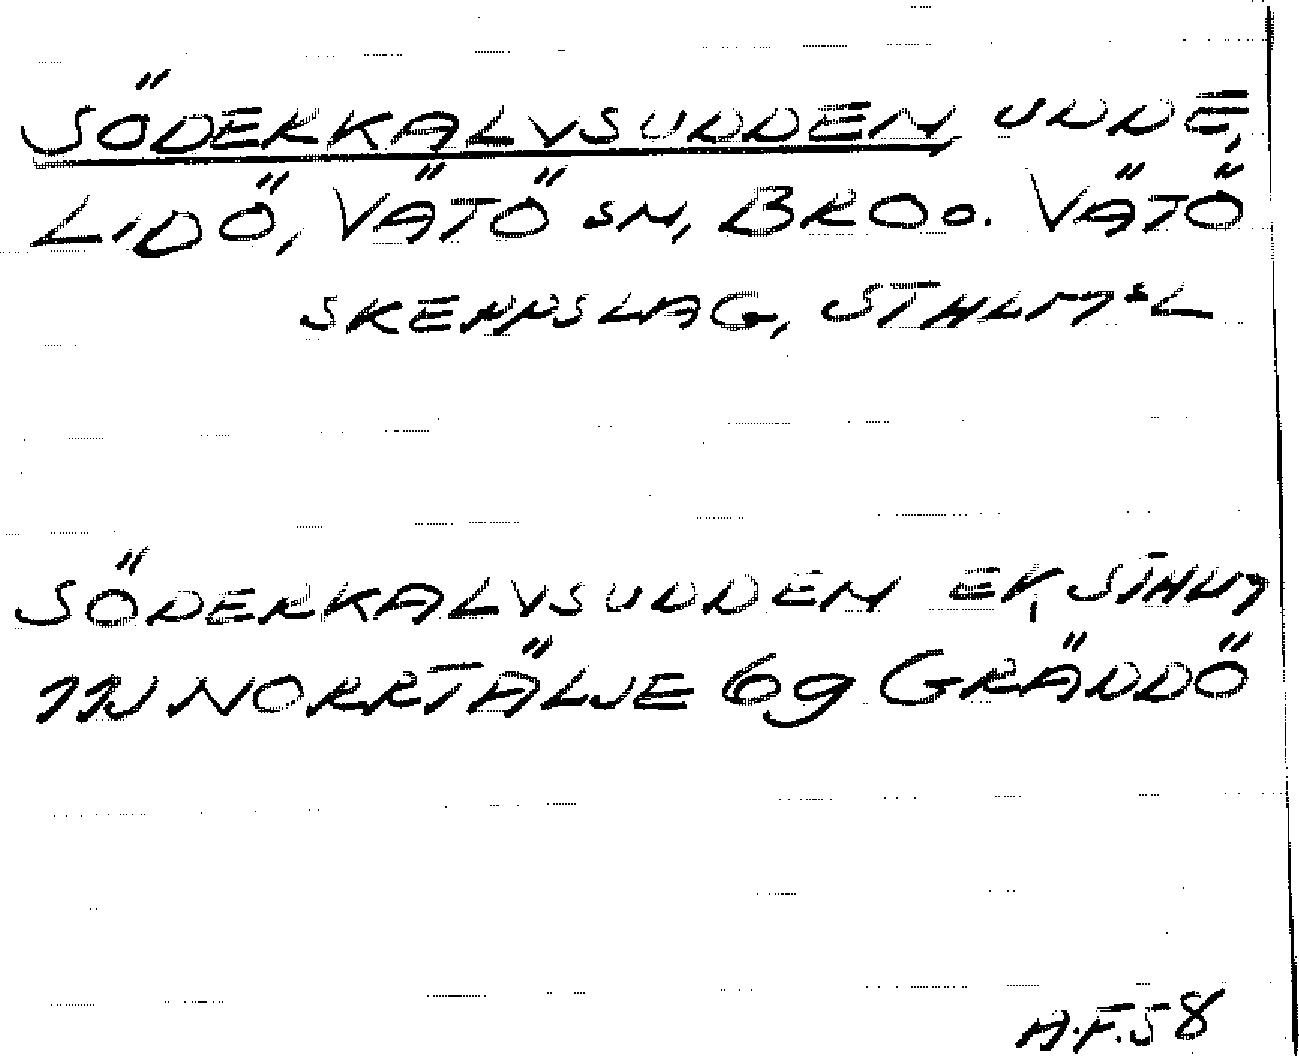 SÖDERKALVSUDDEN, UDDE,
LIDÖ, VÄTÖ SN, BRO O. VÄTÖ
SKEPPSLAG, STHLMS L
SÖDERKALVSUDDEN EK, STHLM
11J NORRTÄLJE 6g GRÄDDÖ
A.F.58